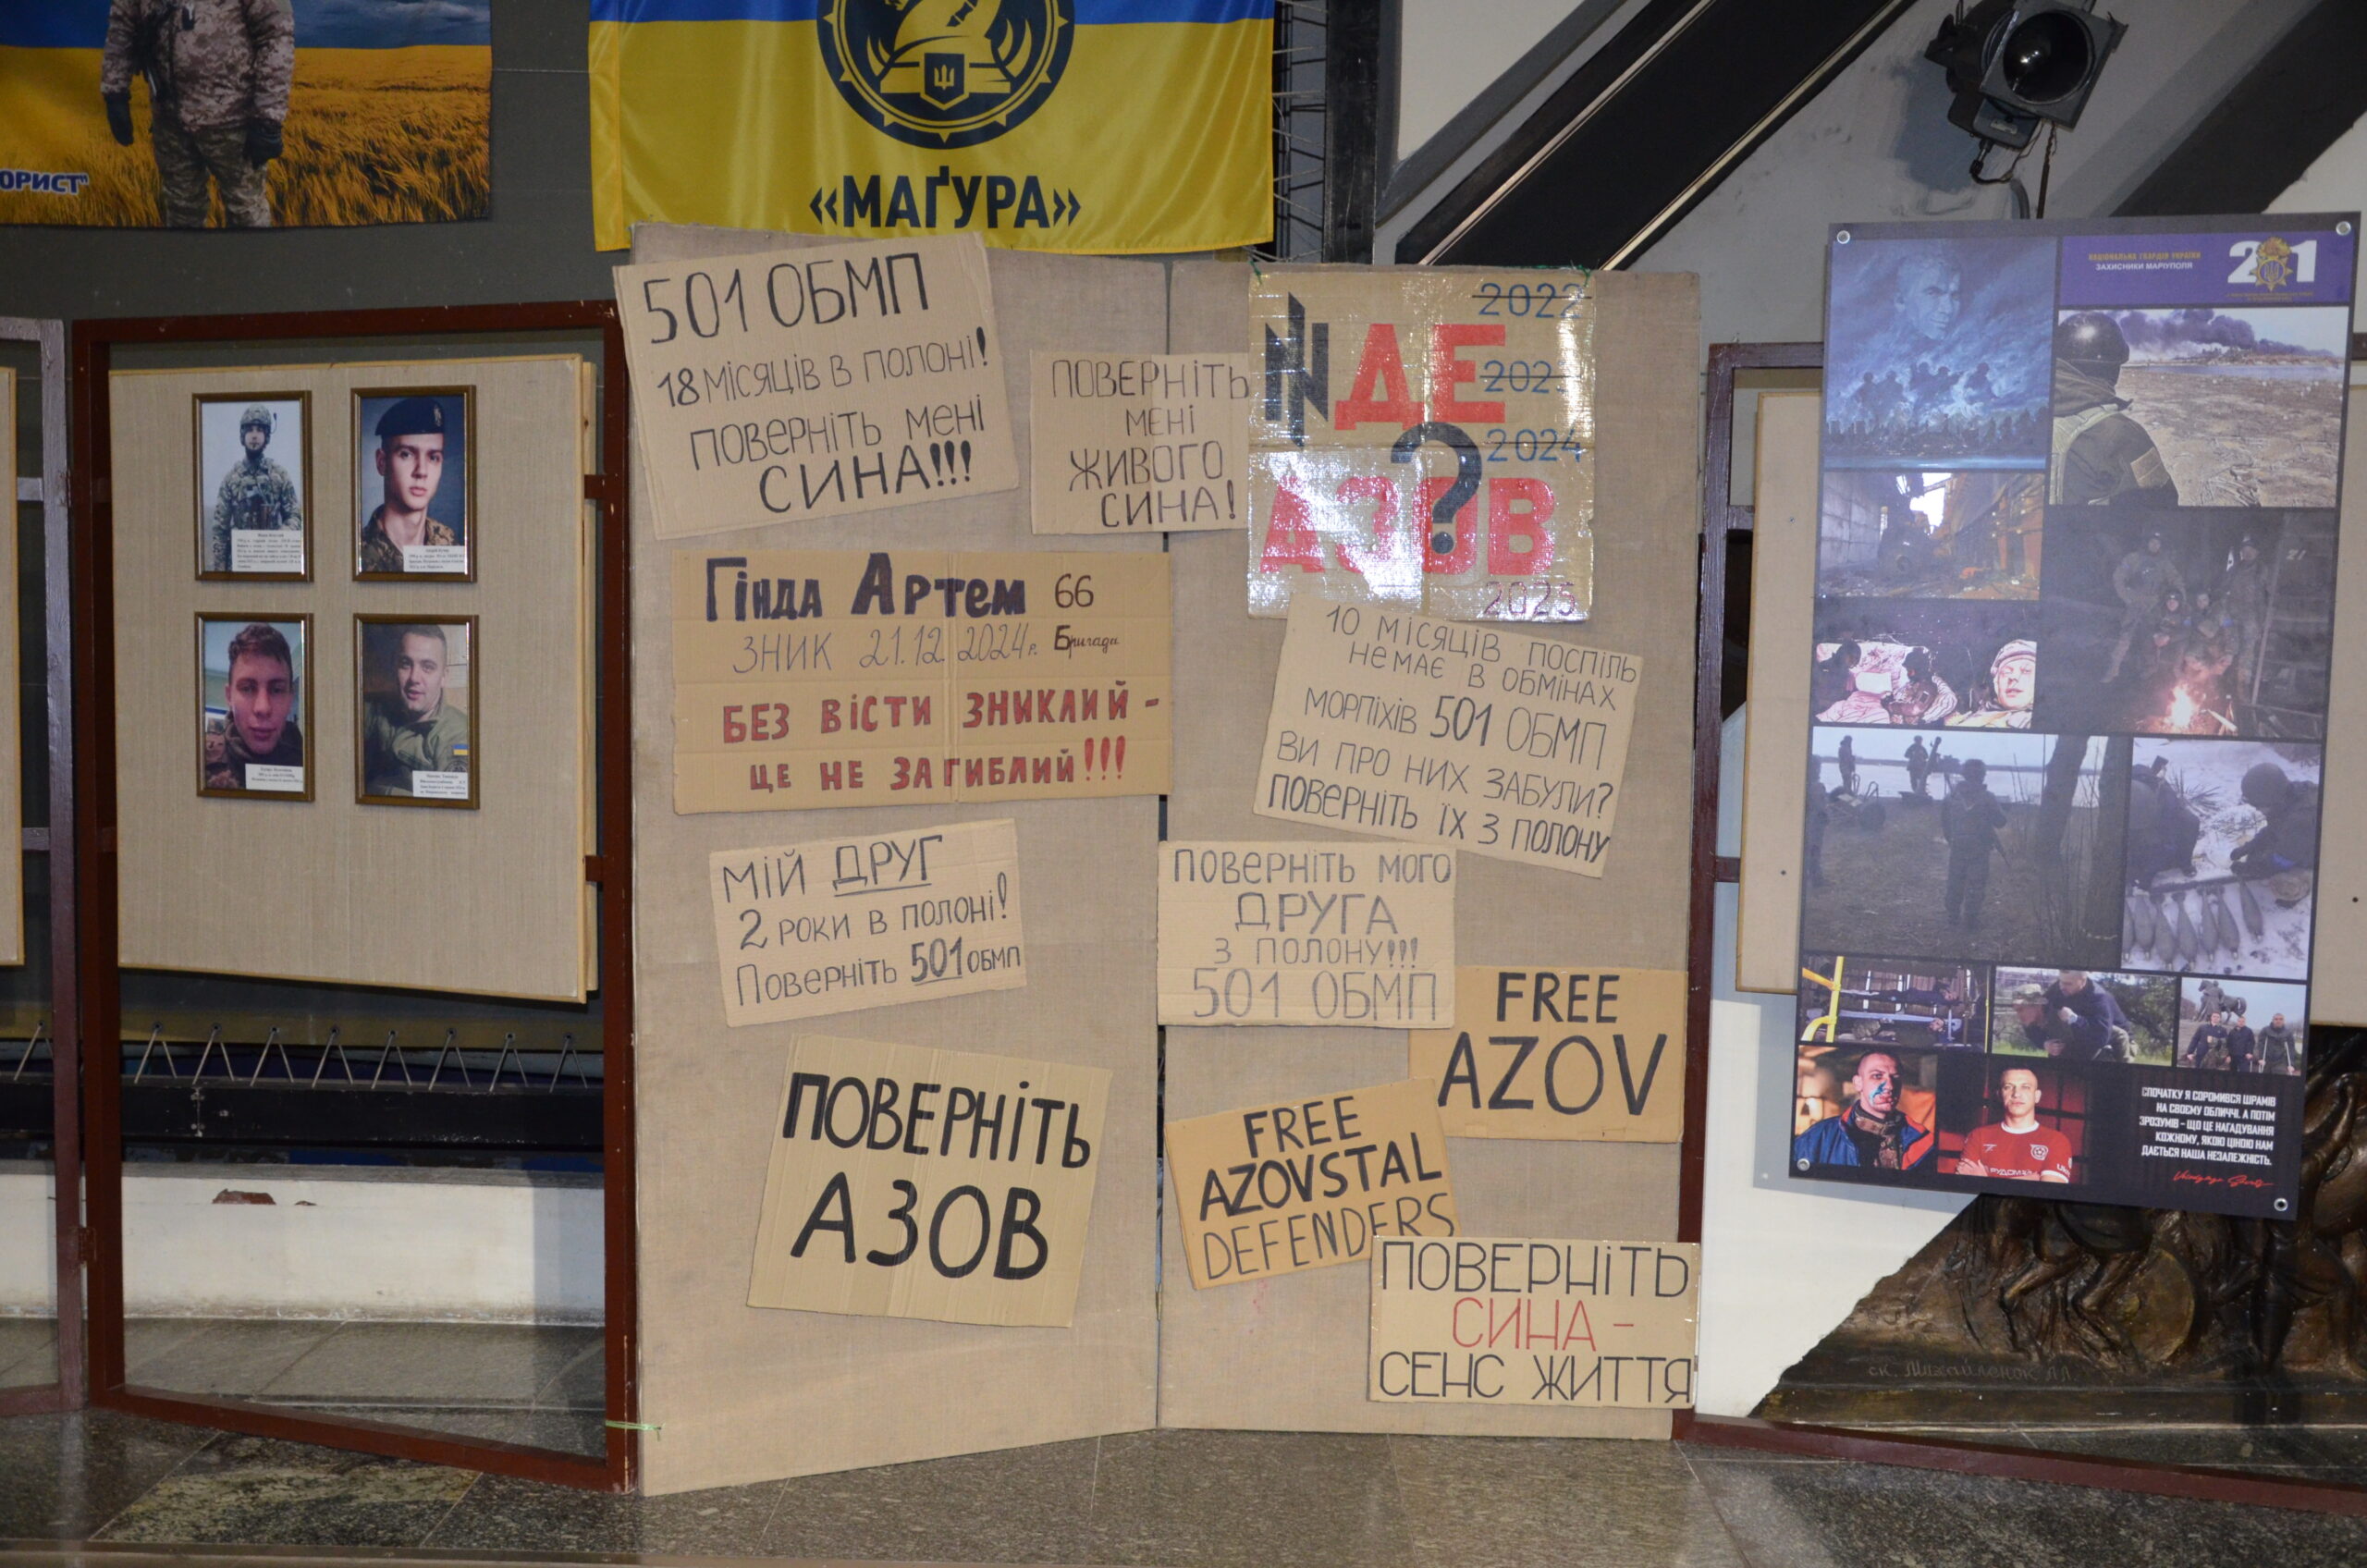 ОРИСТ"
«МАҐУРА»
501 ОБМП
18 МІСЯЦІВ В ПОЛОНІ!
ПОВЕРНІТЬ МЕНІ
СИНА!!!
ПОВЕРНІТЬ
МЕНІ
ЖИВОГО
СИНА!
2022
ДЕ
2024
?
АЗОВ
2025
Гінда Артем 66
ЗНИК 21.12 2024р. Бригади
БЕЗ ВІСТИ ЗНИКЛИЙ -
ЦЕ НЕ ЗАГИБЛИЙ!!!
10 МІСЯЦІВ ПОСПІЛЬ
НЕМАЄ В ОБМІНАХ
МОРПІХІВ 501 ОБМП
ВИ ПРО НИХ ЗАБУЛИ?
ПОВЕРНІТЬ ЇХ З ПОЛОНУ
МІЙ ДРУГ
2 РОКИ В ПОЛОНІ!
Поверніть 501 ОБМП
ПОВЕРНІТЬ МОГО
ДРУГА
З ПОЛОНУ!!!
501 ОБМП
FREE
AZOV
ПОВЕРНІТЬ
АЗОВ
FREE
AZOVSTAL
DEFENDERS
ПОВЕРНІТЬ
СИНА -
СЕНС ЖИТТЯ
НАЦІОНАЛЬНА ГВАРДІЯ УКРАЇНИ
ЗАХИСНИКИ МАРІУПОЛЯ
СПОЧАТКУ Я СОРОМИВСЯ ШРАМІВ
НА СВОЄМУ ОБЛИЧЧІ. А ПОТІМ
ЗРОЗУМІВ - ЩО ЦЕ НАГАДУВАННЯ
КОЖНОМУ, ЯКОЮ ЦІНОЮ НАМ
ДАЄТЬСЯ НАША НЕЗАЛЕЖНІСТЬ.
ск. Михайленок